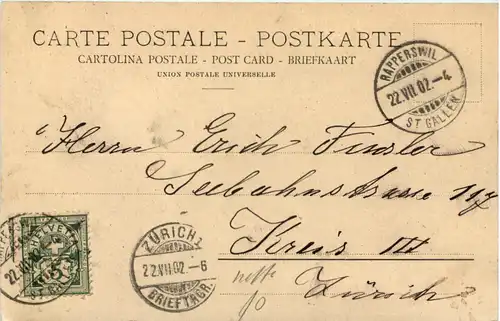 CARTE POSTALE – POSTKARTE
CARTOLINA POSTALE - POST CARD - BRIEFKAART
UNION POSTALE UNIVERSELLE
RAPPERSWIL
22.VII.02.-4
ST GALLEN
Herrn Erich Finsler
Seebahnstrasse 117
Kreis III
Zürich
ZÜRICH
22.VII.02.-6
BRIEFTRGR.
HELVETIA
5